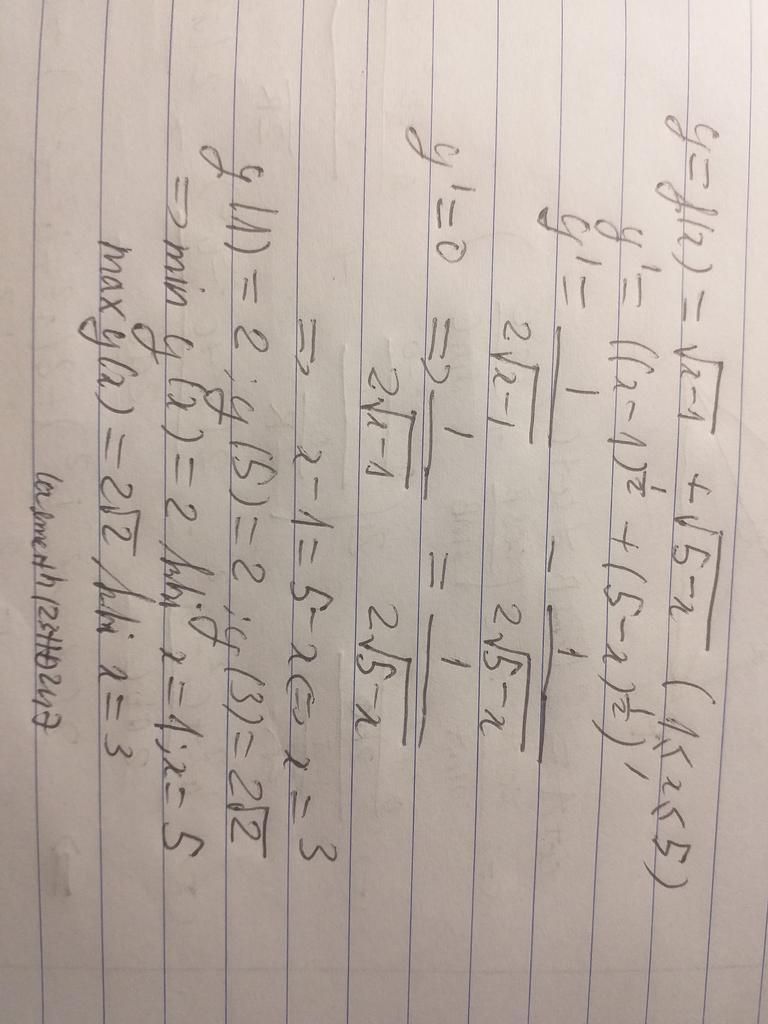 y = f(x) = √x-1 + √5-x (1 ≤ x ≤ 5)
y' = ((x-1)^½ + (5-x)^½)'
y' = 1/(2√x-1) - 1/(2√5-x)
y' = 0 => 1/(2√x-1) = 1/(2√5-x)
=> x-1 = 5-x <=> x = 3
y(1) = 2; y(5) = 2; y(3) = 2√2
=> min y(x) = 2 khi x = 1; x = 5
max y(x) = 2√2 khi x = 3